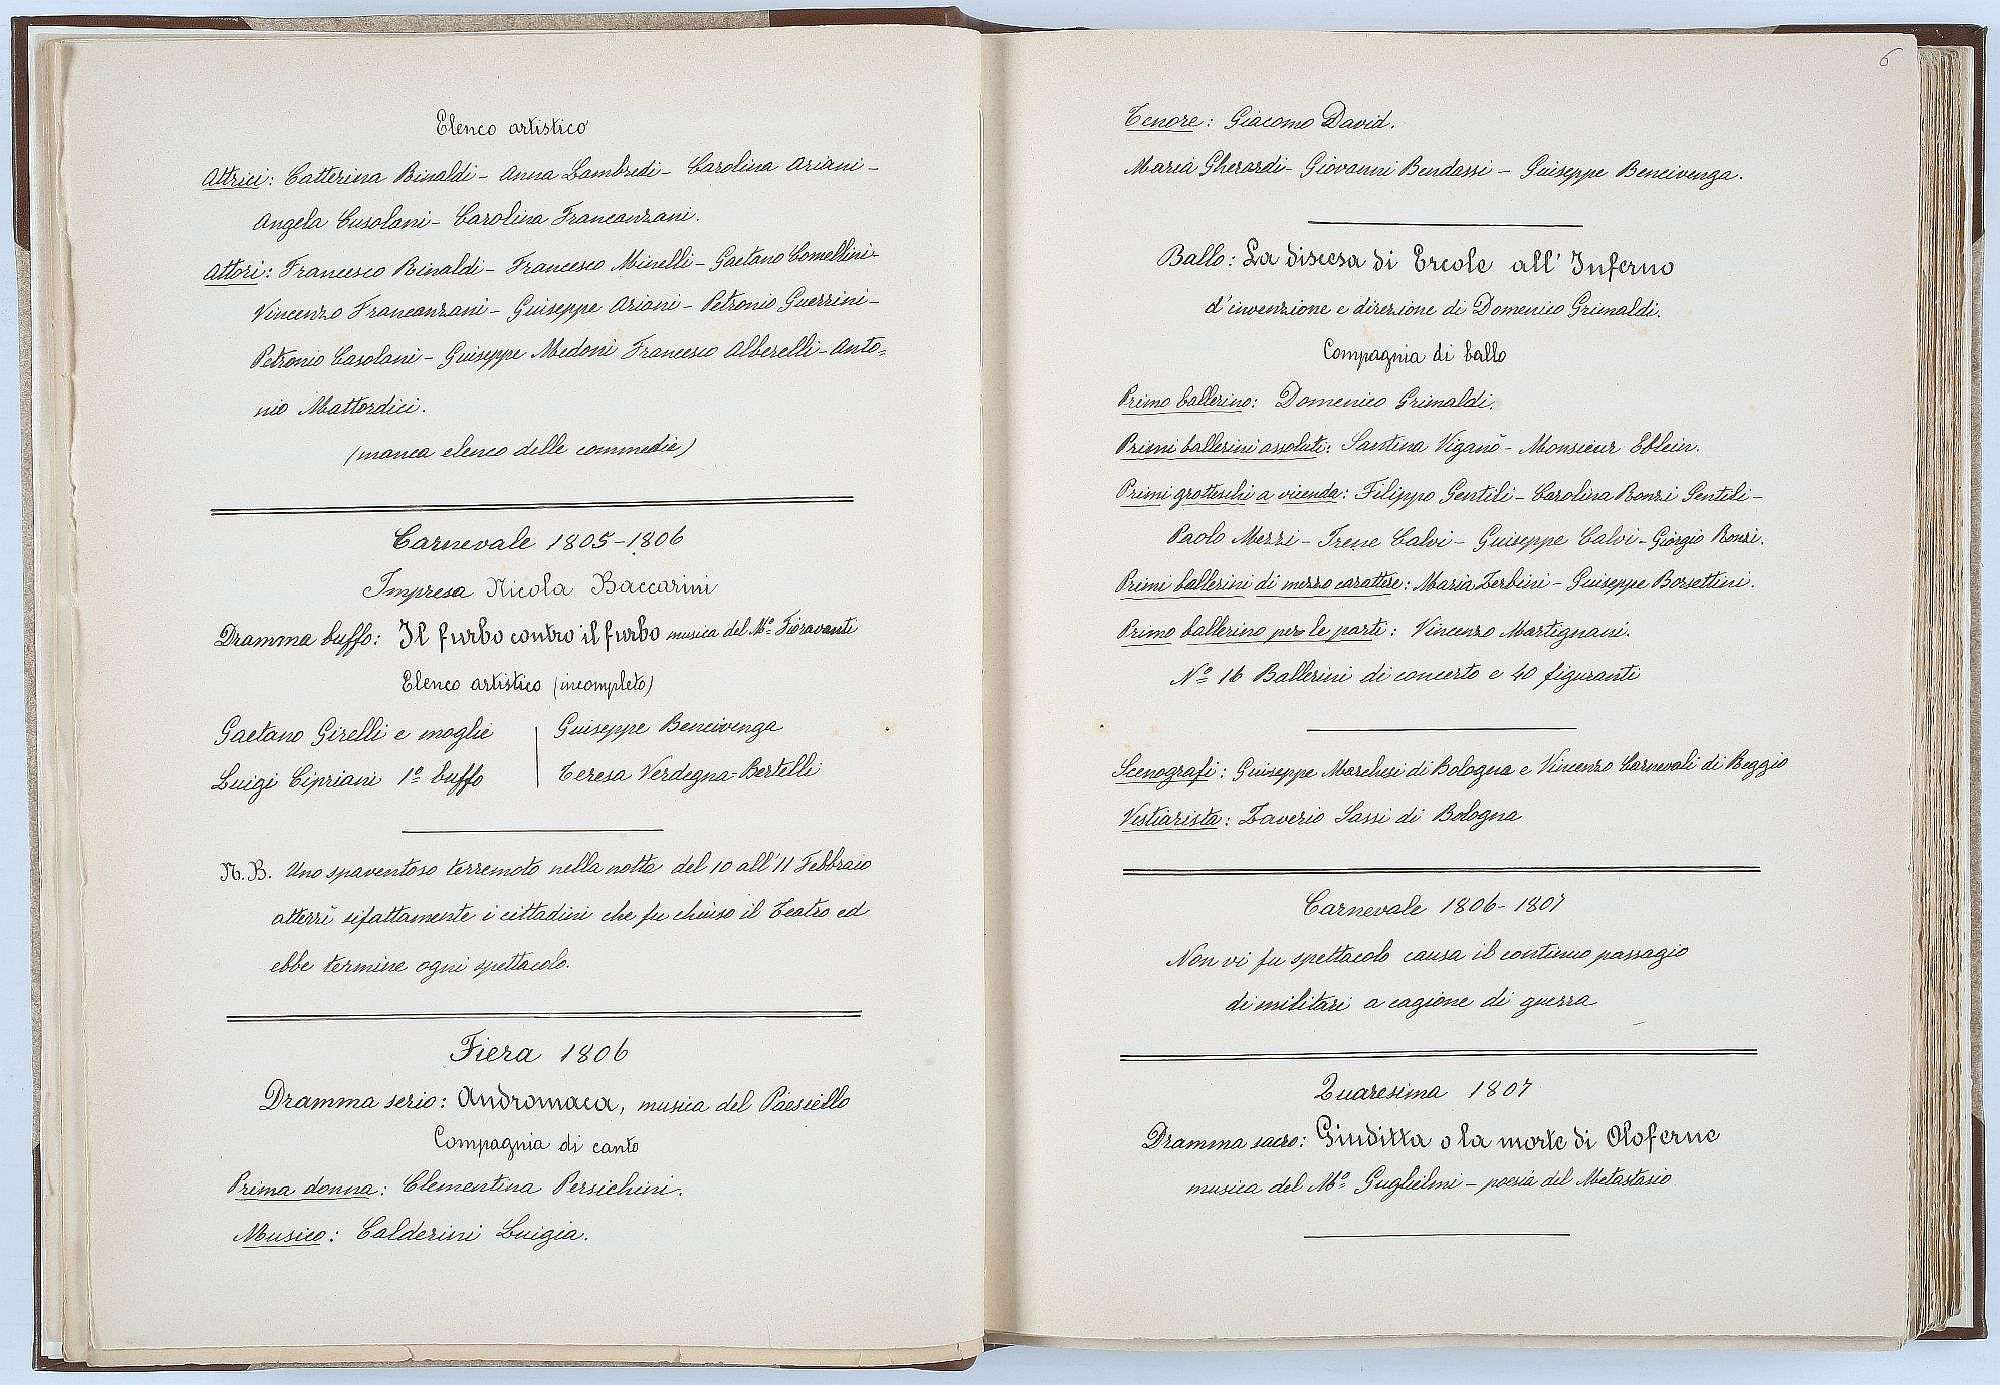 Elenco artistico
Attrici: Catterina Rinaldi - Anna Lambredi - Carolina Ariani -
Angela Cusolani - Carolina Francanzani.
Attori: Francesco Rinaldi - Francesco Minelli - Gaetano Comellini -
Vincenzo Francanzani - Guiseppe Ariani - Petronio Guerrini -
Petronio Casolani - Guiseppe Medoni Francesco Alberelli - Anto=
nio Mattordici.
(manca elenco delle commedie)
Carnevale 1805-1806
Impresa Nicola Baccarini
Dramma buffo: Il furbo contro il furbo musica del Mº Fioravanti
Elenco artistico (incompleto)
Gaetano Girelli e moglie
Luigi Cipriani 1º buffo
Guiseppe Bencivenga
Teresa Verdegna-Bertelli
N.B. Uno spaventoso terremoto nella notta del 10 all'11 Febbraio
atterrì sifattamente i cittadini che fu chiuso il Teatro ed
ebbe termine ogni spettacolo.
Fiera 1806
Dramma serio: Andromaca, musica del Paesiello
Compagnia di canto
Prima donna: Clementina Persichini.
Musico: Calderini Luigia.
6
Tenore: Giacomo David.
Maria Gherardi - Giovanni Bendassi - Guiseppe Bencivenga.
Ballo: La discesa di Ercole all' Inferno
d'invenzione e direzione di Domenico Grimaldi.
Compagnia di ballo
Primo ballerino: Domenico Grimaldi.
Primi ballerini assoluti: Santina Viganò - Monsieur Eblein.
Primi grotteschi a vicenda: Filippo Gentili - Carolina Ronzi Gentili -
Paolo Mezzi - Irene Calvi - Guiseppe Calvi - Giorgio Ronzi.
Primi ballerini di mezzo carattere: Maria Zerbini - Guiseppe Borsettini.
Primo ballerino per le parti: Vincenzo Martignani.
Nº 16 Ballerini di concerto e 40 figuranti
Scenografi: Guiseppe Marchesi di Bologna e Vincenzo Carnevali di Reggio
Vestiarista: Zaverio Sassi di Bologna
Carnevale 1806-1807
Non vi fu spettacolo causa il continuo passagio
di militari a cagione di guerra
Quaresima 1807
Dramma sacro: Giuditta o la morte di Oloferne
musica del Mº Guglielmi - poesia del Metastasio